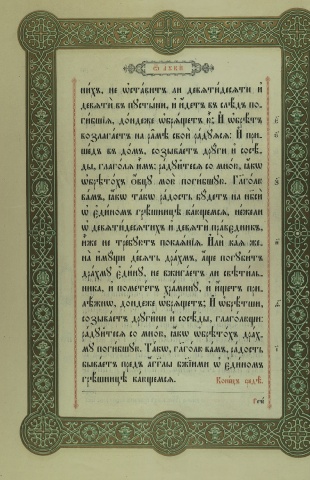 Ѿ лꙋкѝ
ни́хъ, не ѡ҆ста́витъ ли девѧти́десѧти и҆
девѧтѝ въ пꙋсты́ни, и҆ и҆́детъ въ слѣ́дъ по-
ги́бшїѧ, до́ндеже ѡ҆брѧ́щетъ ю҆̀; И҆ ѡ҆брѣ́тъ
возлага́етъ на ра́мѣ своѝ ра́дꙋѧсѧ: И҆ при-
ше́дъ въ до́мъ, созыва́етъ дрꙋ́ги и҆ сосѣ́-
ды, глаго́лѧ и҆̀мъ: ра́дꙋйтесѧ со мно́ю, ꙗ҆́кѡ
ѡ҆брѣто́хъ ѻ҆вцꙋ̀ мою̀ поги́бшꙋю. Гл҃го́лю
ва́мъ, ꙗ҆́кѡ та́кѡ ра́дость бꙋ́детъ на нб҃сѝ
ѡ҆ є҆ди́номъ грѣ́шницѣ ка́ющемсѧ, не́жели
ѡ҆ девѧти́десѧтихъ и҆ девѧтѝ пра́ведникъ,
и҆̀же не тре́бꙋютъ покаѧ́нїѧ. И҆лѝ ка́ѧ же-
на̀ и҆мꙋ́щи де́сѧть дра́хмъ, а҆́ще погꙋби́тъ
дра́хмꙋ є҆ди́нꙋ, не вжига́етъ ли свѣти́ль-
ника, и҆ помете́тъ хра́минꙋ, и҆ и҆́щетъ при-
лѣ́жнѡ, до́ндеже ѡ҆брѧ́щетъ; И҆ ѡ҆брѣ́тши,
созыва́етъ дрꙋги̑ни и҆ сосѣ́ды, глаго́лющи:
ра́дꙋйтесѧ со мно́ю, ꙗ҆́кѡ ѡ҆брѣто́хъ дра́х-
мꙋ поги́бшꙋю. Та́кѡ, гл҃го́лю ва́мъ, ра́дость
быва́етъ пред̾ а҆́гг҃лы бж҃їими ѡ҆ є҆ди́номъ
грѣ́шницѣ ка́ющемсѧ. Коне́цъ сꙋббѡ́тѣ.